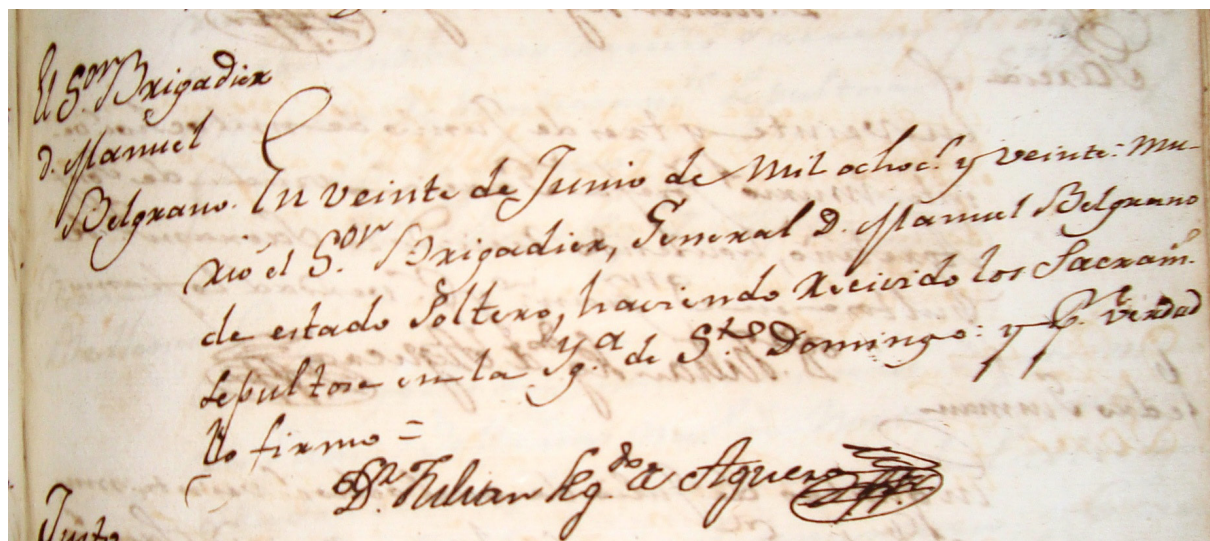 El S.or Brigadier
d. Manuel
Belgrano.
En veinte de Junio de Mil ochoc.s y veinte: mu-
rió el S.or Brigadier, General D. Manuel Belgrano
de estado Soltero, haviendo Recivido los Sacram.s
sepultose en la Yg.a de S.to Domingo: y p.r verdad
lo firmo =
D.r Julian Seg.do de Aguero
Justo